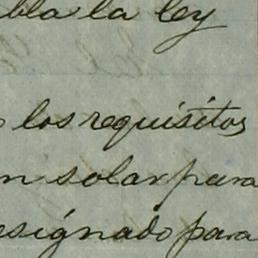 bla la ley
los requisitos
n solar para
esignado para